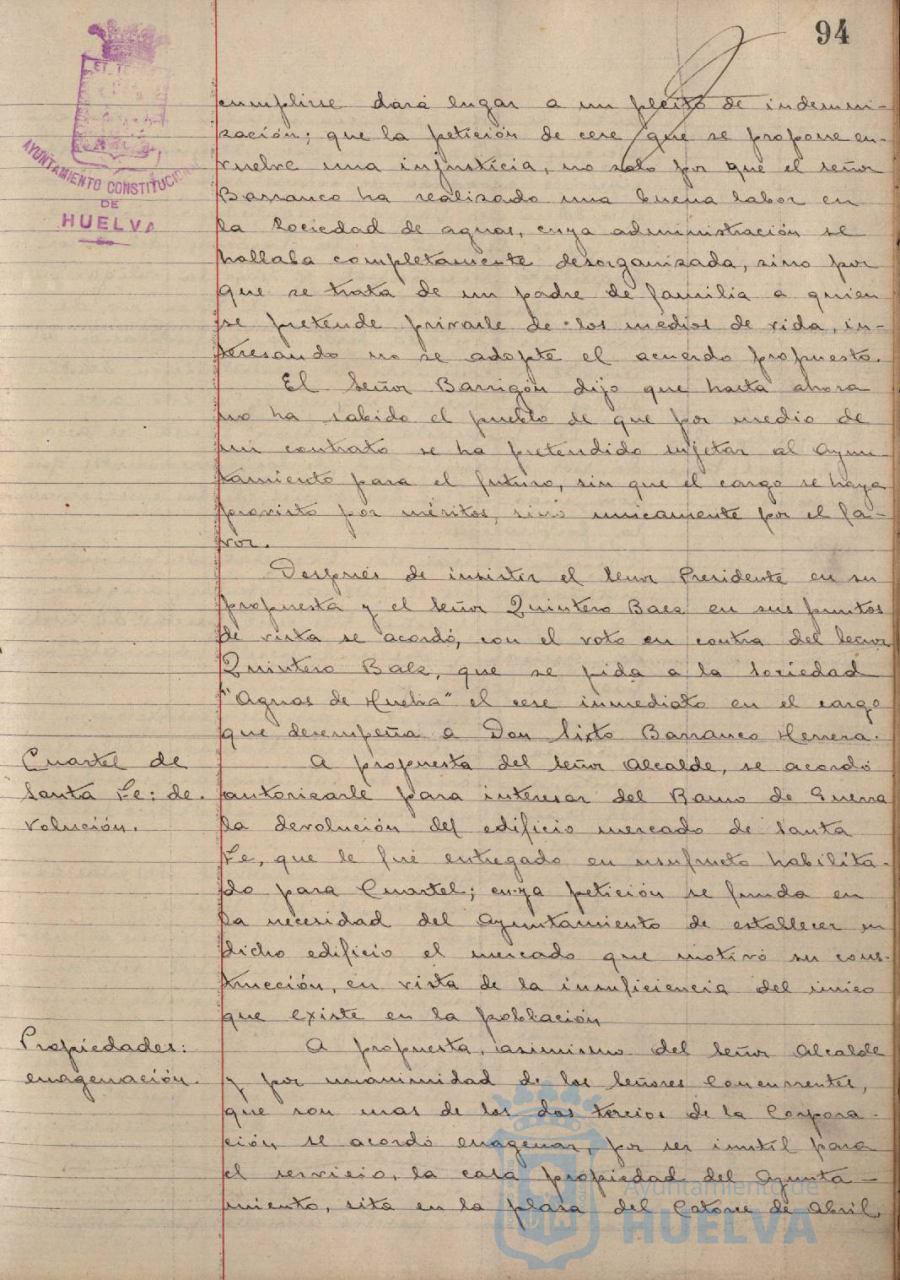 94
ET TE
AYUNTAMIENTO CONSTITUCION
DE
HUELVA
cumplirse dará lugar a un pleito de indemni-
zación; que la petición de cese que se propone en-
vuelve una injusticia, no solo por que el señor
Barranco ha realizado una buena labor en
la Sociedad de aguas, cuya administración se
hallaba completamente desorganizada, sino por
que se trata de un padre de familia a quien
se pretende privarle de los medios de vida, in-
teresando no se adopte el acuerdo propuesto.
El Señor Barrigón dijo que hasta ahora
no ha sabido el pueblo de que por medio de
un contrato se ha pretendido sujetar al Ayun-
tamiento para el futuro, sin que el cargo se haya
provisto por méritos, sino unicamente por el fa-
vor.
Después de insistir el Señor Presidente en su
propuesta y el Señor Quintero Baez en sus puntos
de vista se acordó, con el voto en contra del Señor
Quintero Baez, que se pida a la Sociedad
"Aguas de Huelva" el cese inmediato en el cargo
que desempeña a Don Sixto Barranco Herrera.
Cuartel de
Santa Fe: de-
volución.
A propuesta del Señor Alcalde, se acordó
autorizarle para interesar del Ramo de Guerra
la devolución del edificio mercado de Santa
Fe, que le fué entregado en usufructo habilita-
do para Cuartel; cuya petición se funda en
la necesidad del Ayuntamiento de establecer en
dicho edificio el mercado que motivó su cons-
trucción, en vista de la insuficiencia del único
que existe en la población
Propiedades:
enagenación.
A propuesta, asimismo del Señor Alcalde
y por unanimidad de los Señores Concurrentes,
que son mas de los dos tercios de la Corpora-
ción, se acordó enagenar, por ser inutil para
el servicio, la casa propiedad del Ayunta-
miento, sita en la plaza del Catorce de Abril,
Ayuntamiento de
HUELVA